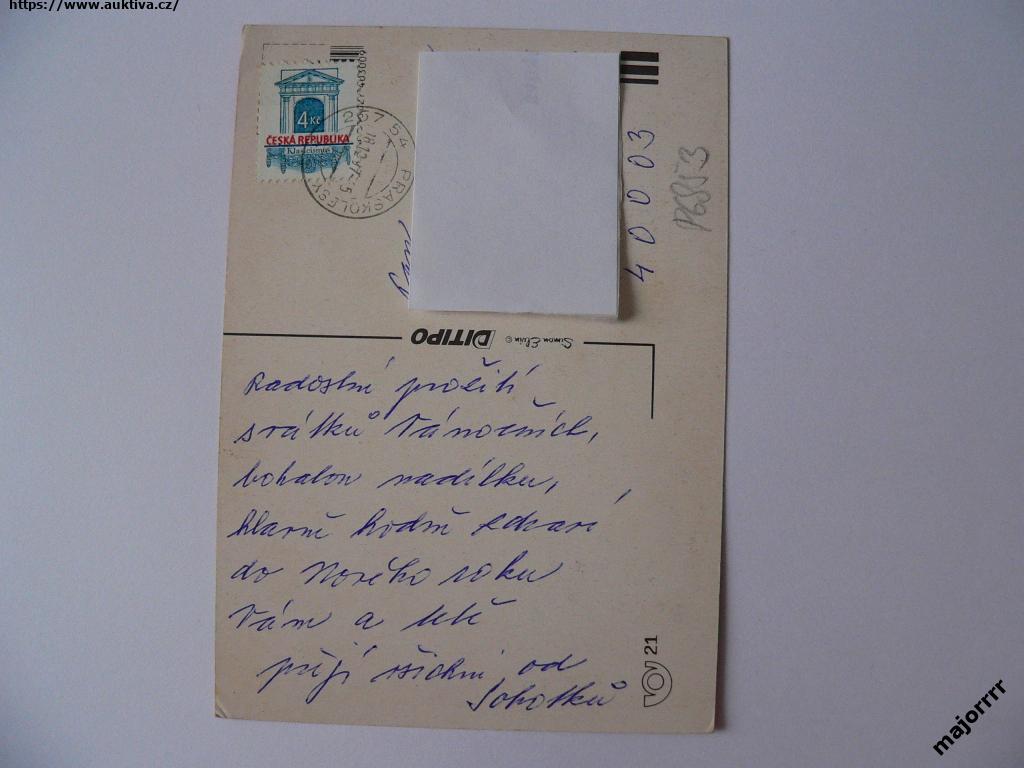 https://www.auktiva.cz/
4 Kč
ČESKÁ REPUBLIKA
Klasicismus
267 54 PRASKOLESY
18.12.97
400 03
DITIPO
Simon Elvin ©
Radostné prožití
svátků Vánočních,
bohatou nadílku,
hlavně hodně zdraví
do Nového roku
Vám a tetě
přejí všichni od
Sobotků
VOV 21
majorrrr